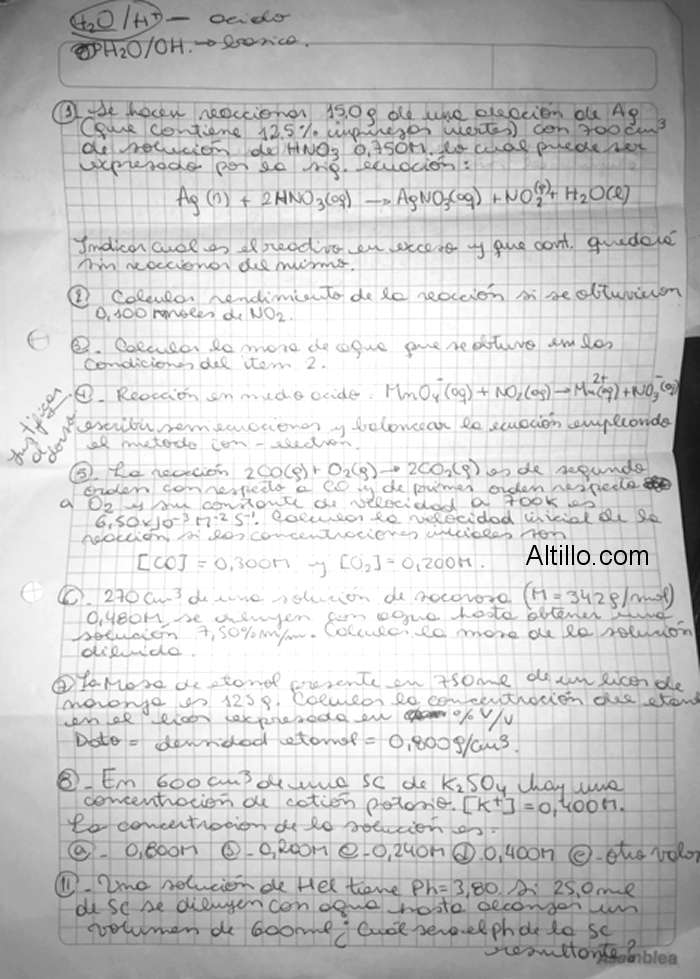 H2O/H+ — acido
H2O/OH. → basico.
① - Se hacen reaccionar 15,0g de una aleación de Ag
(que contiene 12,5% impurezas inertes) con 700 cm3
de solución de HNO3 0,750M. lo cual puede ser
expresado por la sig. ecuación:
Ag (s) + 2HNO3(aq) → AgNO3(aq) + NO2(g) + H2O(l)
Indicar cual es el reactivo en exceso y que cant. quedará
sin reaccionar del mismo.
② Calcular rendimiento de la reacción si se obtuvieron
0,100 moles de NO2.
③. Calcular la masa de agua que se obtuvo en las
condiciones del item 2.
④ - Reacción en medio acido. MnO4-(aq) + NO2(aq) → Mn2+(aq) + NO3-(aq)
escribir semiecuaciones y balancear la ecuación empleando
el metodo ion-electron.
⑤. La reacción 2CO(g) + O2(g) → 2CO2(g) es de segundo
orden con respecto a CO y de primer orden respecto
a O2 y su constante de velocidad a 700K es
6,50x10-3 M-2 S-1. Calcular la velocidad inicial de la
reacción si las concentraciones iniciales son
[CO] = 0,300M y [O2] = 0,200M.
Altillo.com
6. 270 cm3 de una solución de sacarosa (M=342g/mol)
0,480M, se diluyen con agua hasta obtener una
solución 7,50% m/m. Calcular la masa de la solución
diluida.
⑦ La Masa de etanol presente en 750 ml de un licor de
naranja es 123 g. Calcular la concentración del etanol
en el licor expresada en % V/V
Dato = densidad etanol = 0,800g/cm3.
⑧ - En 600 cm3 de una SC de K2SO4 hay una
concentración de catión potasio. [K+] = 0,400M.
La concentracion de la solución es.
ⓐ - 0,800M ⓑ - 0,200M ⓒ - 0,240M ⓓ 0,400M ⓔ - otro valor
11 - Una solución de HCl tiene Ph = 3,80. Si 25,0 ml
de SC se diluyen con agua hasta alcanzar un
volumen de 600 ml ¿ Cuál sera el ph de la SC
resultante?